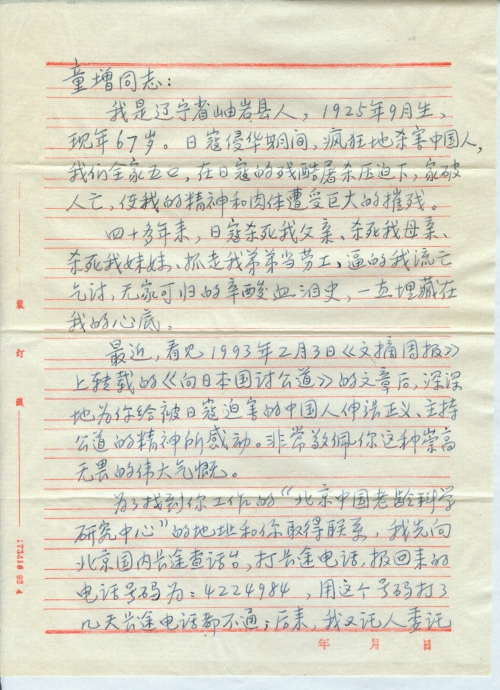 童增同志：
我是辽宁省岫岩县人，1925年9月生，
现年67岁。日寇侵华期间，疯狂地杀害中国人，
我们全家五口，在日寇的残酷屠杀压迫下，家破
人亡，使我的精神和肉体遭受巨大的摧残。
四十多年来，日寇杀死我父亲、杀死我母亲、
杀死我妹妹、抓走我弟弟当劳工、逼的我流亡
乞讨，无家可归的辛酸血泪史，一直埋藏在
我的心底。
最近，看见1993年2月3日《文摘周报》
上转载的《向日本国讨公道》的文章后，深深
地为你给被日寇迫害的中国人伸张正义、主持
公道的精神所感动。非常敬佩你这种崇高
无畏的伟大气慨。
为了找到你工作的“北京中国老龄科学
研究中心”的地址和你取得联系，我先向
北京国内长途查话台，打长途电话，报回来的
电话号码为：4224984，用这个号码打了
几天长途电话都不通；后来，我又讬人委讬
年 月 日
装
订